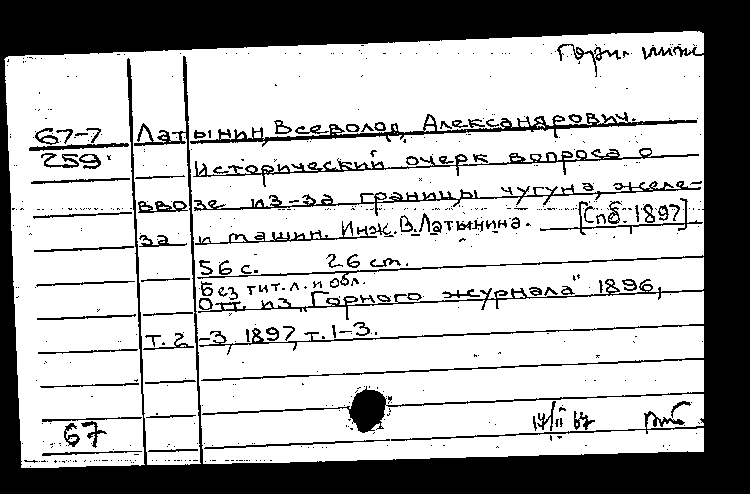 Горн. инж
67-7 Латынин, Всеволод Александрович.
259. Исторический очерк вопроса о
ввозе из-за границы чугуна, желе-
за и машин. Инж. В. Латынина. [Спб. 1897]
56 с. 26 cm.
Без тит. л. и обл.
Отт. из „Горного журнала" 1896,
т. 2-3, 1897, т. 1-3.
67 14/II 67